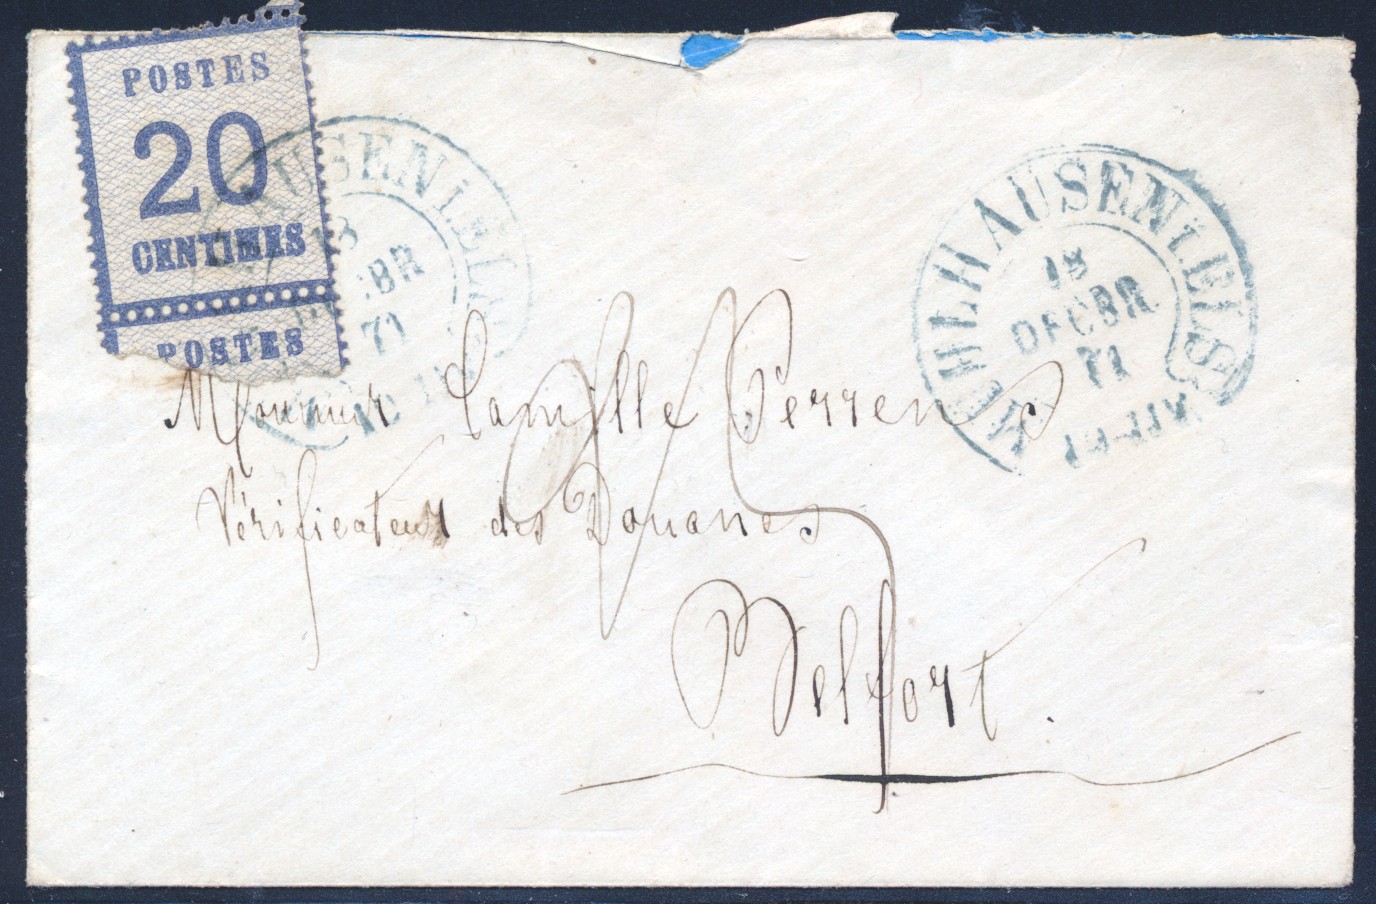 POSTES
20
CENTIMES
POSTES
MUHLHAUSEN I ELS
18
DECBR
71
Monsieur Camille Perrens
Vérificateur des Douanes
Belfort.